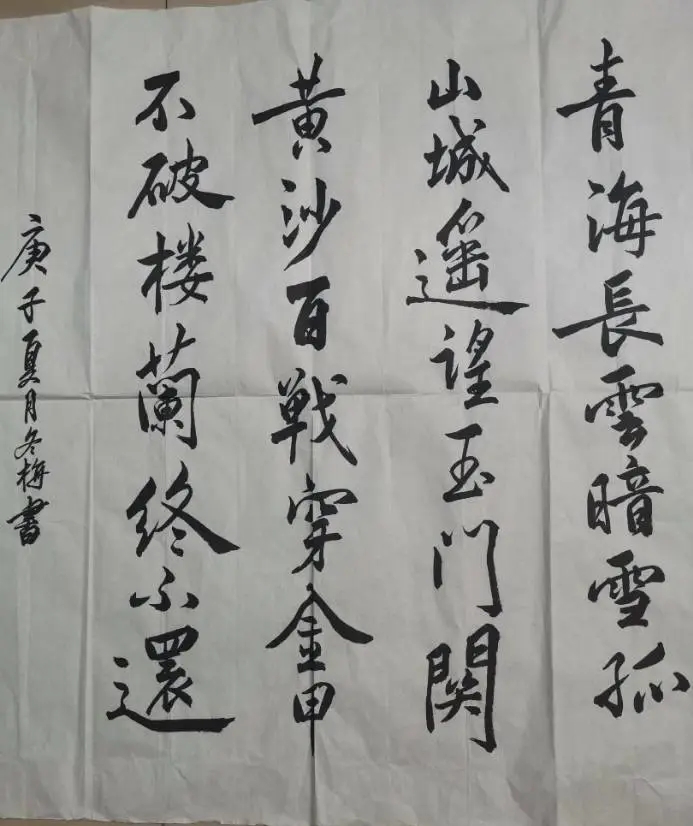 青海長雲暗雪孤
山城遥望玉門関
黄沙百戦穿金甲
不破楼蘭終不還
庚子夏月冬梅書